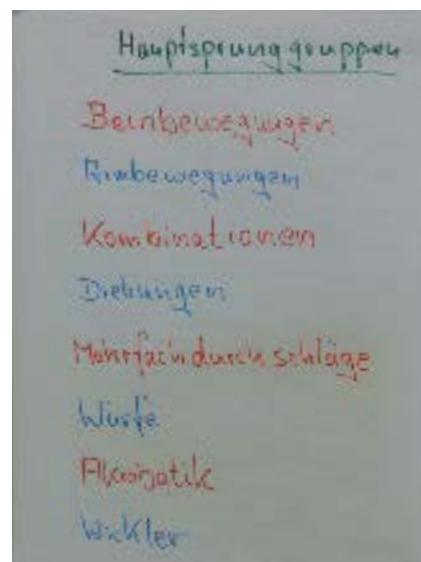 Hauptsprunggruppen
Beinbewegungen
Armbewegungen
Kombinationen
Drehungen
Mehrfachdurchschläge
Würfe
Akrobatik
Wickler